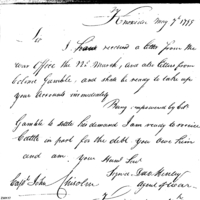 Knoxville May 7th 1795
Sir
I have received a letter from the
War Office the 22d March, and also letters from
Colonel Gamble, and shall be ready to take up
your accounts immediately
Being empowered by Col
Gamble to settle his demand I am ready to receive
Cattle in part for the debt you owe him
and am your Hum Servt
Signed David Henley
Capt John Chisolm
Agent of War